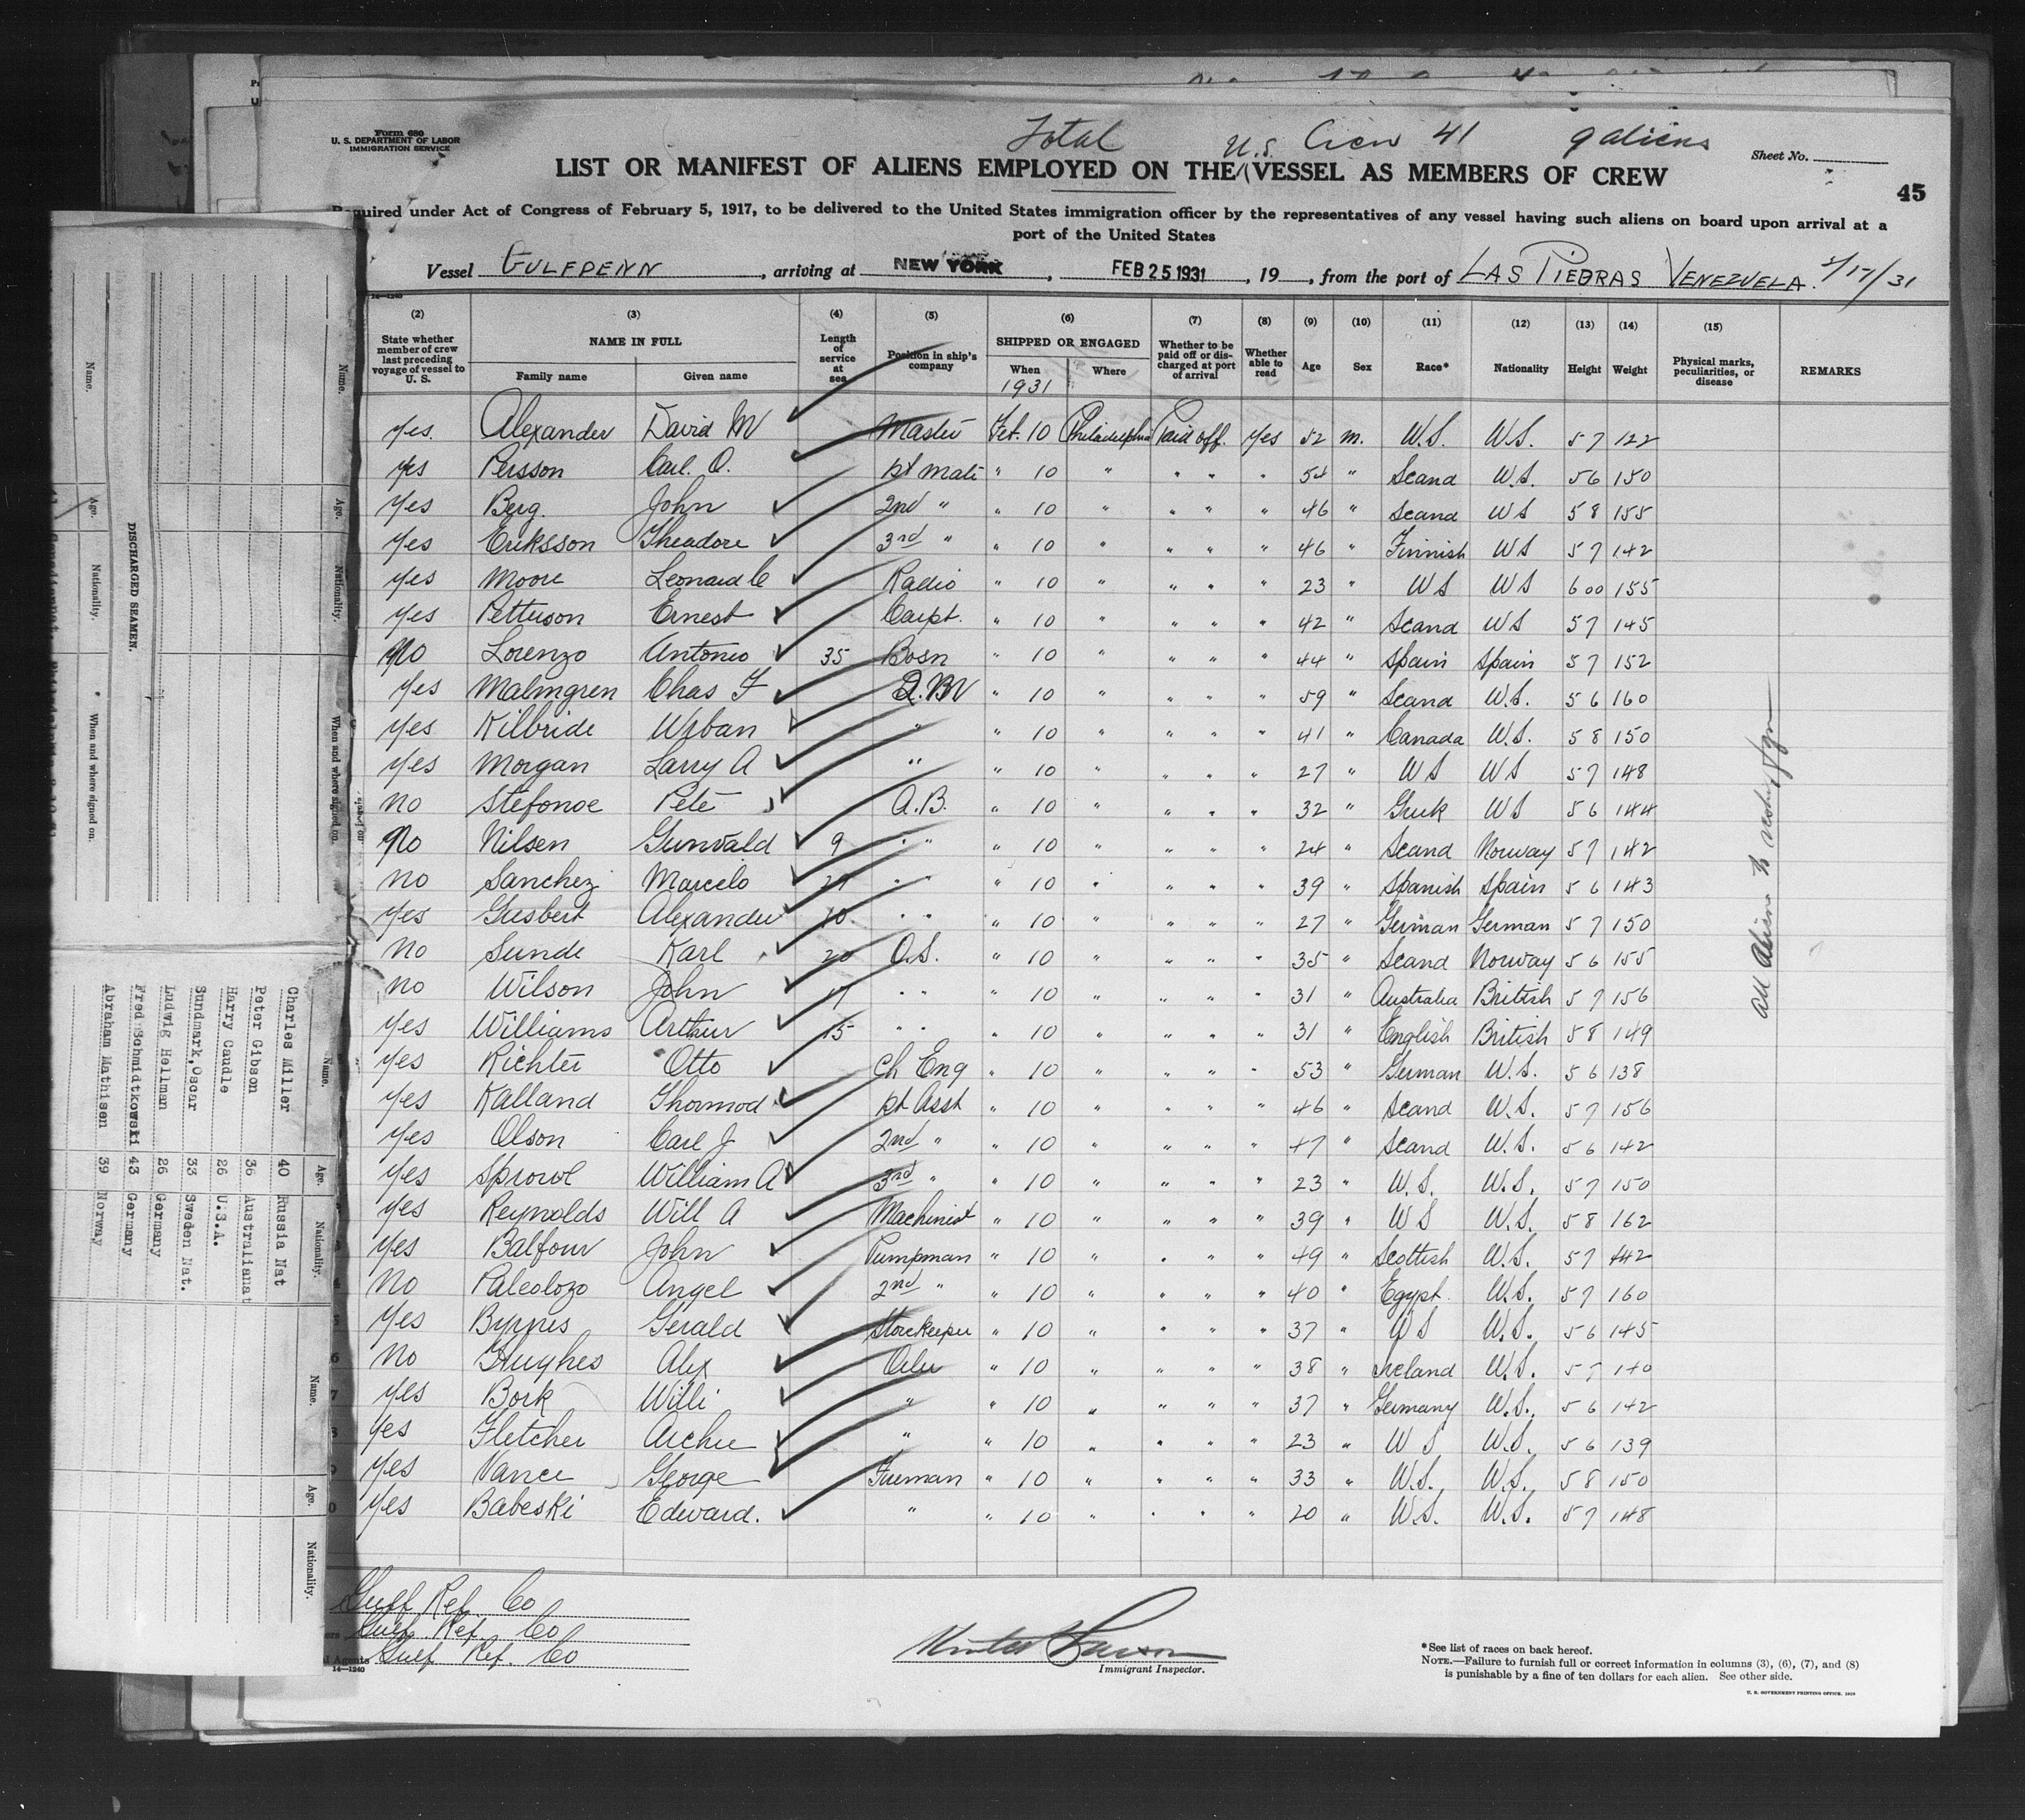 Form 680
U. S. DEPARTMENT OF LABOR
IMMIGRATION SERVICE
Total U.S. Crew 41 9 aliens
Sheet No.
LIST OR MANIFEST OF ALIENS EMPLOYED ON THE VESSEL AS MEMBERS OF CREW
45
Required under Act of Congress of February 5, 1917, to be delivered to the United States immigration officer by the representatives of any vessel having such aliens on board upon arrival at a
port of the United States
Vessel GULFPENN, arriving at NEW YORK, FEB 25 1931, 19, from the port of LAS PIEDRAS VENEZUELA. 2/17/31
14-1240
(2) (3) (4) (5) (6) (7) (8) (9) (10) (11) (12) (13) (14) (15)
State whether member of crew last preceding voyage of vessel to U. S. NAME IN FULL Family name Given name Length of service at sea Position in ship's company SHIPPED OR ENGAGED When 1931 Where Whether to be paid off or discharged at port of arrival Whether able to read Age Sex Race* Nationality Height Weight Physical marks, peculiarities, or disease REMARKS
Yes. Alexander David M Master Feb. 10 Philadelphia Paid off. Yes 52 m. U.S. U.S. 5 7 122
Yes Persson Carl. O. 1st Mate " 10 " " " " 54 " Scand U.S. 5 6 150
Yes Berg. John 2nd " " 10 " " " " 46 " Scand US 5 8 155
Yes Eriksson Theadore 3rd " " 10 " " " " 46 " Finnish US 5 7 142
Yes Moore Leonard C Radio " 10 " " " " 23 " US US 6 00 155
Yes Petterson Ernest Carpt. " 10 " " " " 42 " Scand US 5 7 145
No Lorenzo Antonio 35 Bosn " 10 " " " " 44 " Spain Spain 5 7 152
Yes Malmgren Chas F Q.M " 10 " " " " 59 " Scand U.S. 5 6 160
Yes Kilbride Urban " " 10 " " " " 41 " Canada U.S. 5 8 150
Yes Morgan Larry A " " 10 " " " " 27 " US US 5 7 148
No Stefonoe Pete A.B. " 10 " " " " 32 " Greek US 5 6 144
No Nilsen Gunvald 9 " " " 10 " " " " 24 " Scand Norway 5 7 142
No Sanchez Marcelo " " " 10 " " " " 39 " Spanish Spain 5 6 143
Yes Giesbert Alexander 10 " " " 10 " " " " 27 " German German 5 7 150
No Sunde Karl 20 O.S. " 10 " " " " 35 " Scand Norway 5 6 155
No Wilson John 17 " " " 10 " " " " 31 " Australia British 5 7 156
Yes Williams Arthur 15 " " " 10 " " " " 31 " English British 5 8 149
Yes Richter Otto Ch Eng " 10 " " " " 53 " German U.S. 5 6 138
Yes Kalland Thormod 1st Asst " 10 " " " " 46 " Scand U.S. 5 7 156
Yes Olson Carl J 2nd " " 10 " " " " 47 " Scand U.S. 5 6 142
Yes Sprowl William A 3rd " " 10 " " " " 23 " U.S. U.S. 5 7 150
Yes Reynolds Will A Machinist " 10 " " " " 39 " US U.S. 5 8 162
Yes Balfour John Pumpman " 10 " " " " 49 " Scottish U.S. 5 7 142
No Paleolozo Angel 2nd " " 10 " " " " 40 " Egypt. U.S. 5 7 160
Yes Byrnes Gerald Storekeeper " 10 " " " " 37 " US U.S. 5 6 145
No Hughes Alex Oiler " 10 " " " " 38 " Ireland U.S. 5 7 140
Yes Bork Willi " " 10 " " " " 37 " Germany U.S. 5 6 142
Yes Fletcher Archie " " 10 " " " " 23 " US U.S. 5 6 139
Yes Vance George Fireman " 10 " " " " 33 " U.S. U.S. 5 8 150
Yes Babeski Edward. " " 10 " " " " 20 " U.S. U.S. 5 7 148
All Aliens to
Gulf Ref. Co
Gulf Ref. Co
Gulf Ref. Co
14-1240
Immigrant Inspector.
*See list of races on back hereof.
NOTE.—Failure to furnish full or correct information in columns (3), (6), (7), and (8)
is punishable by a fine of ten dollars for each alien. See other side.
U. S. GOVERNMENT PRINTING OFFICE
DISCHARGED SEAMEN.
Name. Age. Nationality. When and where signed on.
Name. Age. Nationality. When and where signed on.
Name. Age. Nationality.
Charles Miller 40 Russia Nat
Peter Gibson 36 Australianat
Harry Caudle 26 U.S.A.
Sundmark, Oscar 33 Sweden Nat.
Ludwig Hellman 26 Germany
Fred Schmidtkowski 43 Germany
Abraham Mathisen 39 Norway
Name. Age. Nationality.